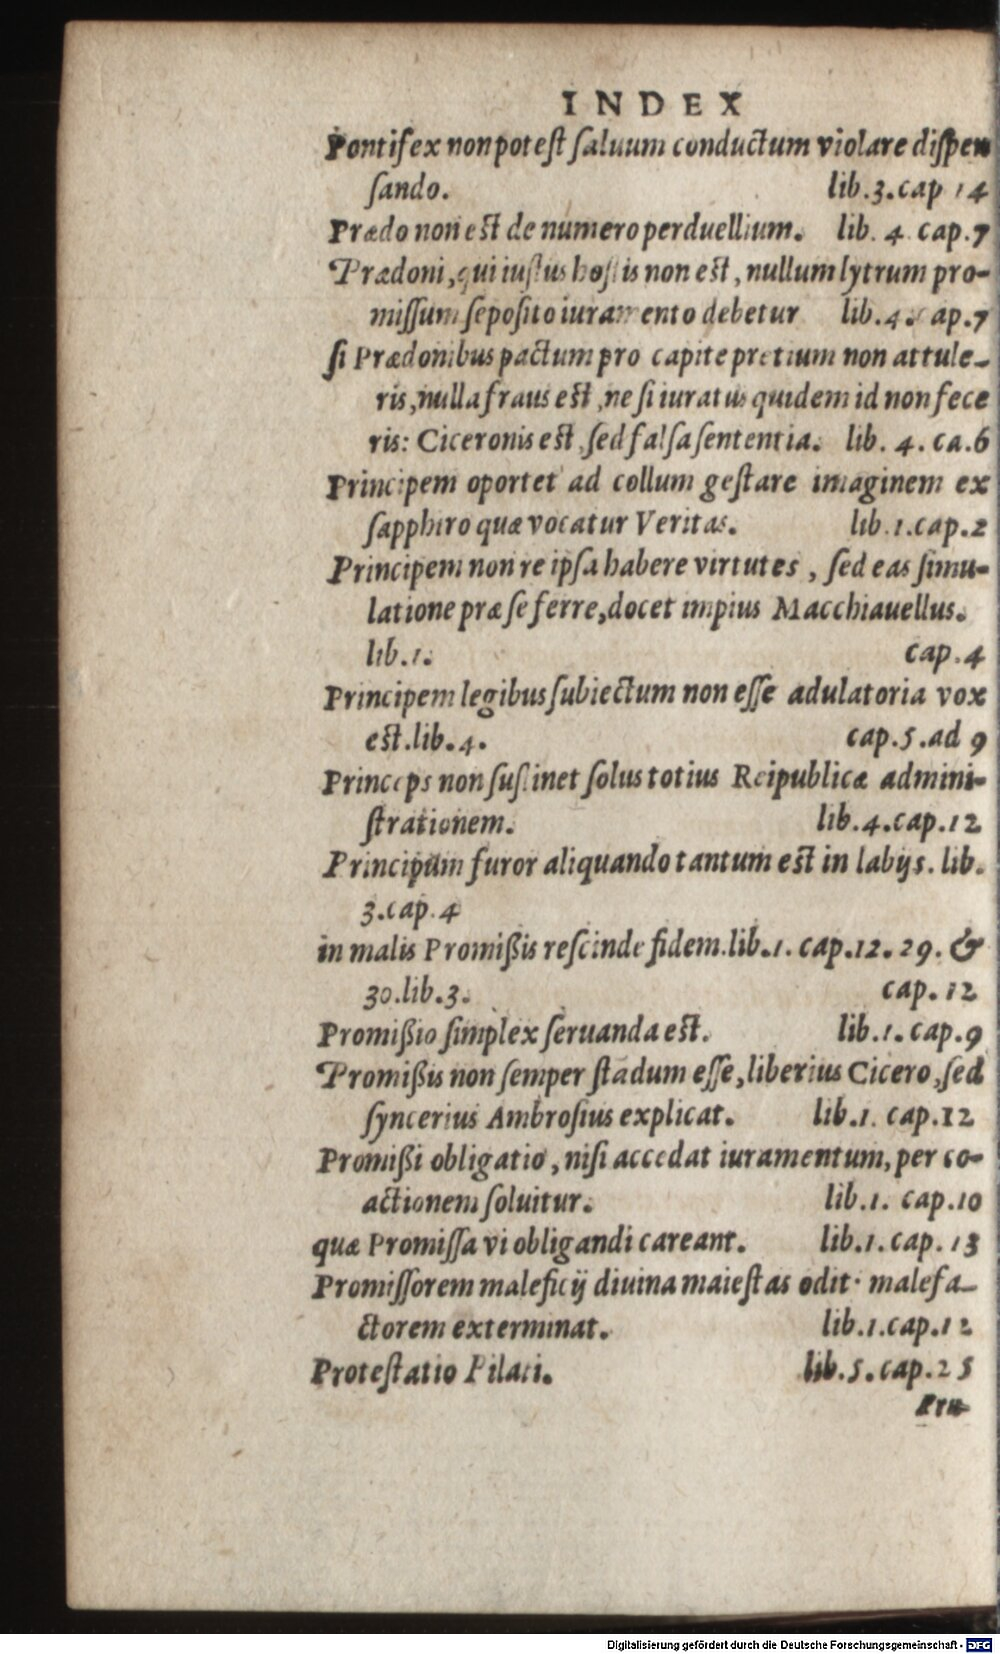 INDEX
Pontifex non potest saluum conductum violare dispen
sando. lib.3.cap 14
Prædo non est de numero perduellium. lib. 4 cap.7
Prædoni, qui iustus hostis non est, nullum lytrum pro-
missum seposito iuramento debetur lib.4. cap.7
si Prædonibus pactum pro capite pretium non attule-
ris, nulla fraus est, ne si iuratus quidem id non fece
ris: Ciceronis est, sed falsa sententia. lib. 4. ca.6
Principem oportet ad collum gestare imaginem ex
sapphiro quæ vocatur Veritas. lib.1.cap.2
Principem non re ipsa habere virtutes, sed eas simu-
latione præ se ferre, docet impius Macchiauellus.
lib.1. cap.4
Principem legibus subiectum non esse adulatoria vox
est.lib.4. cap.5.ad 9
Princeps non sustinet solus totius Reipublicæ admini-
strationem. lib.4.cap.12
Principum furor aliquando tantum est in labijs. lib.
3.cap.4
in malis Promißis rescinde fidem.lib.1. cap.12. 29. &
30.lib.3. cap. 12
Promißio simplex seruanda est. lib.1. cap.9
Promißis non semper stadum esse, liberius Cicero, sed
syncerius Ambrosius explicat. lib.1. cap.12
Promißi obligatio, nisi accedat iuramentum, per co-
actionem soluitur. lib.1. cap.10
quæ Promissa vi obligandi careant. lib.1.cap.13
Promissorem maleficij diuina maiestas odit· malefa-
ctorem exterminat. lib.1.cap.12
Protestatio Pilati. lib.5.cap.25
Pru-
Digitalisierung gefördert durch die Deutsche Forschungsgemeinschaft - DFG